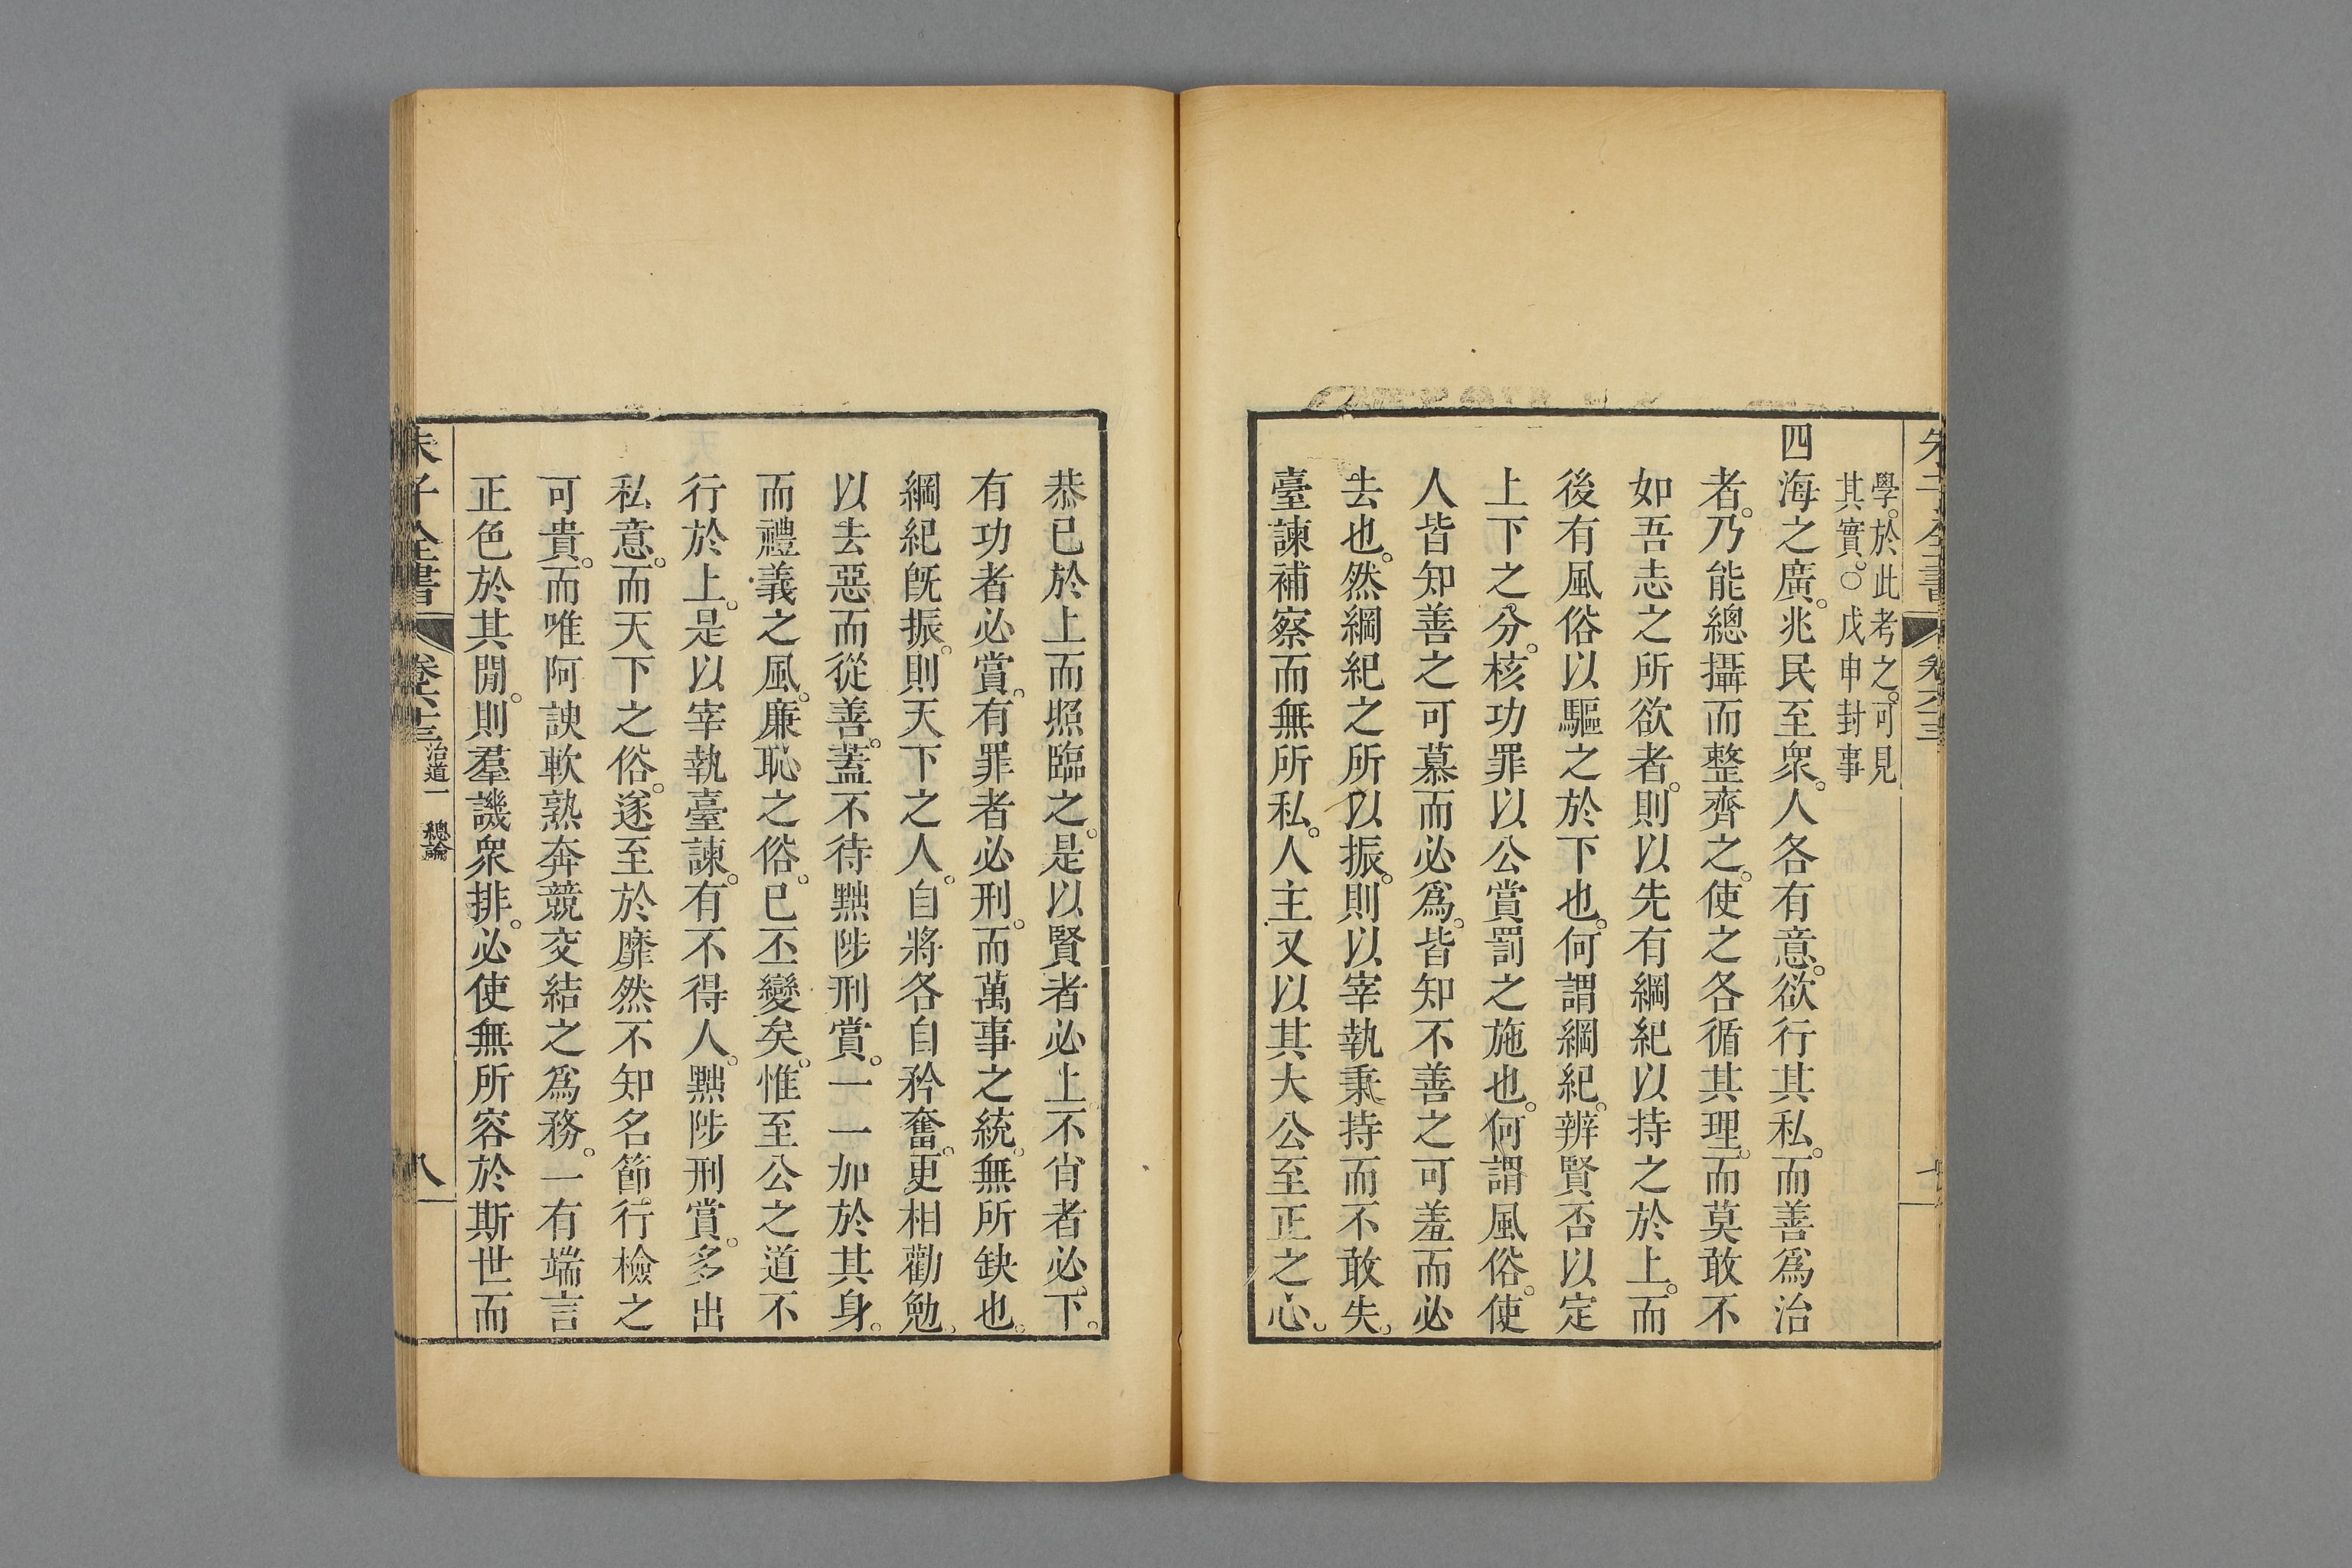 朱子全書 卷六十三 七
學。於此考之。可見
其實。○戊申封事
四海之廣。兆民至衆。人各有意。欲行其私。而善爲治
者。乃能總攝而整齊之。使之各循其理。而莫敢不
如吾志之所欲者。則以先有綱紀以持之於上。而
後有風俗以驅之於下也。何謂綱紀。辨賢否以定
上下之分。核功罪以公賞罰之施也。何謂風俗。使
人皆知善之可慕而必爲。皆知不善之可羞而必
去也。然綱紀之所以振。則以宰執秉持而不敢失。
臺諫補察而無所私。人主又以其大公至正之心。
恭已於上而照臨之。是以賢者必上。不肖者必下。
有功者必賞。有罪者必刑。而萬事之統。無所缺也。
綱紀旣振。則天下之人。自將各自矜奮。更相勸勉。
以去惡而從善。蓋不待黜陟刑賞。一一加於其身。
而禮義之風。廉恥之俗。已丕變矣。惟至公之道不
行於上。是以宰執臺諫。有不得人。黜陟刑賞。多出
私意。而天下之俗。遂至於靡然不知名節行檢之
可貴。而唯阿諛軟熟奔競交結之爲務。一有端言
正色於其閒。則羣譏衆排。必使無所容於斯世而
朱子全書 卷六十三 治道一 總論 八